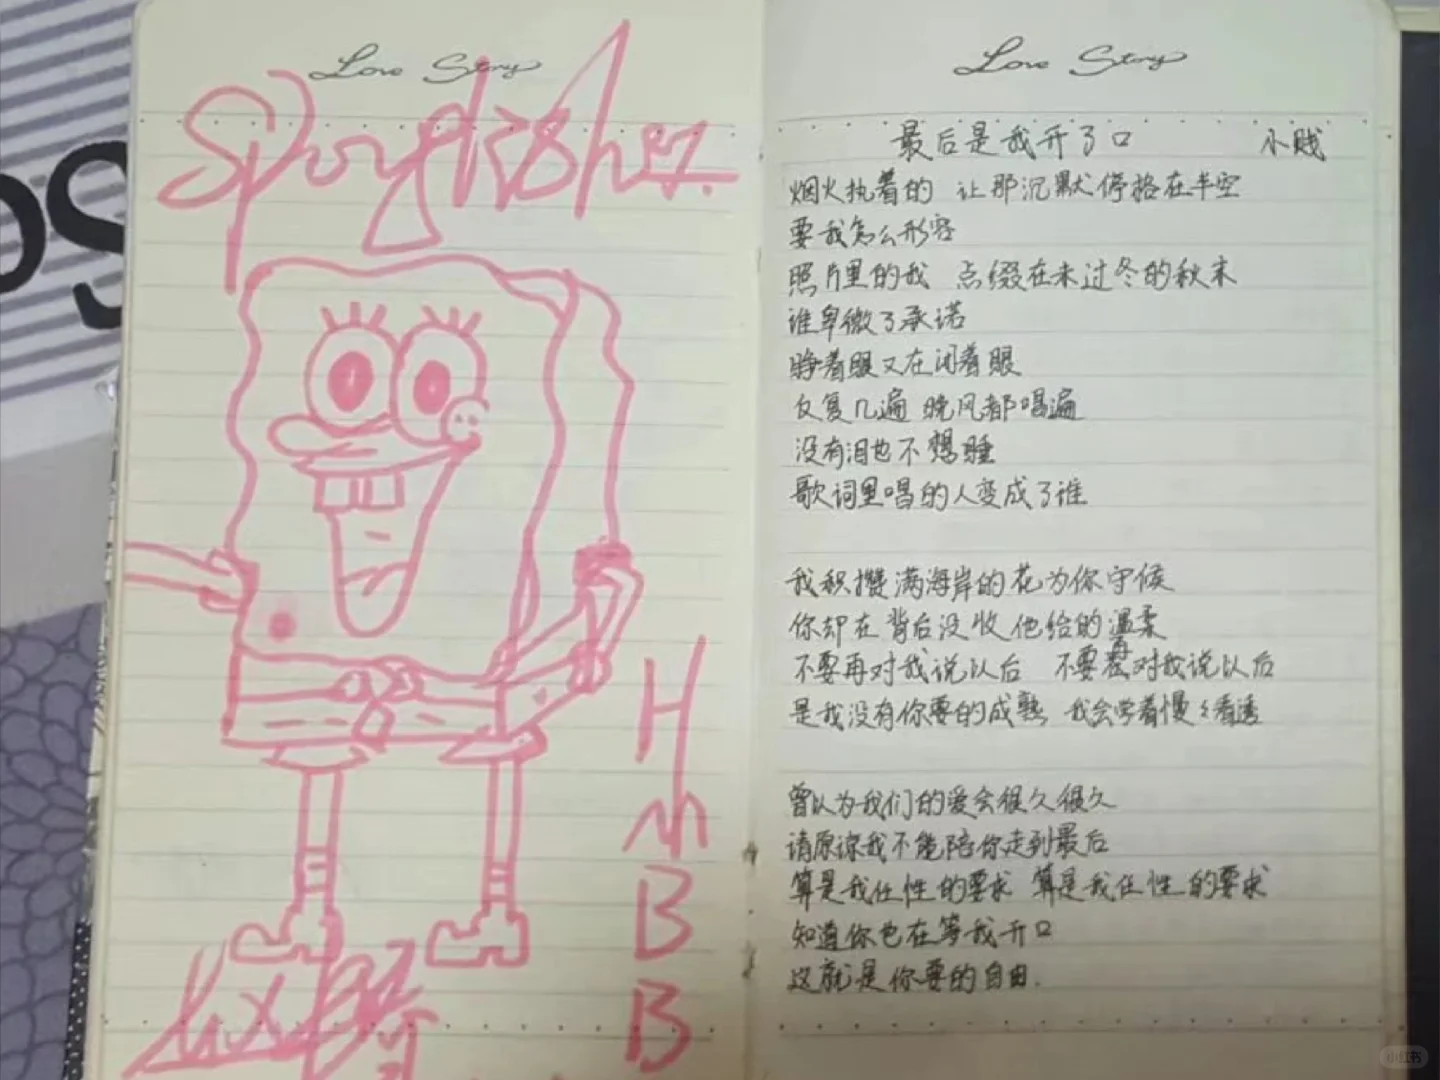 Love Story
H
M
B
B
Love Story
最后是我开了口 小贱
烟火执着的 让那沉默停格在半空
要我怎么形容
照片里的我 点缀在未过冬的秋末
谁卑微了承诺
睁着眼又在闭着眼
反复几遍 晚风都唱遍
没有泪也不想睡
歌词里唱的人变成了谁
我积攒满海岸的花为你守候
你却在背后没收他给的温柔
不要再对我说以后 不要再对我说以后
是我没有你要的成熟 我会学着慢々看透
曾以为我们的爱会很久很久
请原谅我不能陪你走到最后
算是我任性的要求 算是我任性的要求
知道你也在等我开口
这就是你要的自由.
小红书